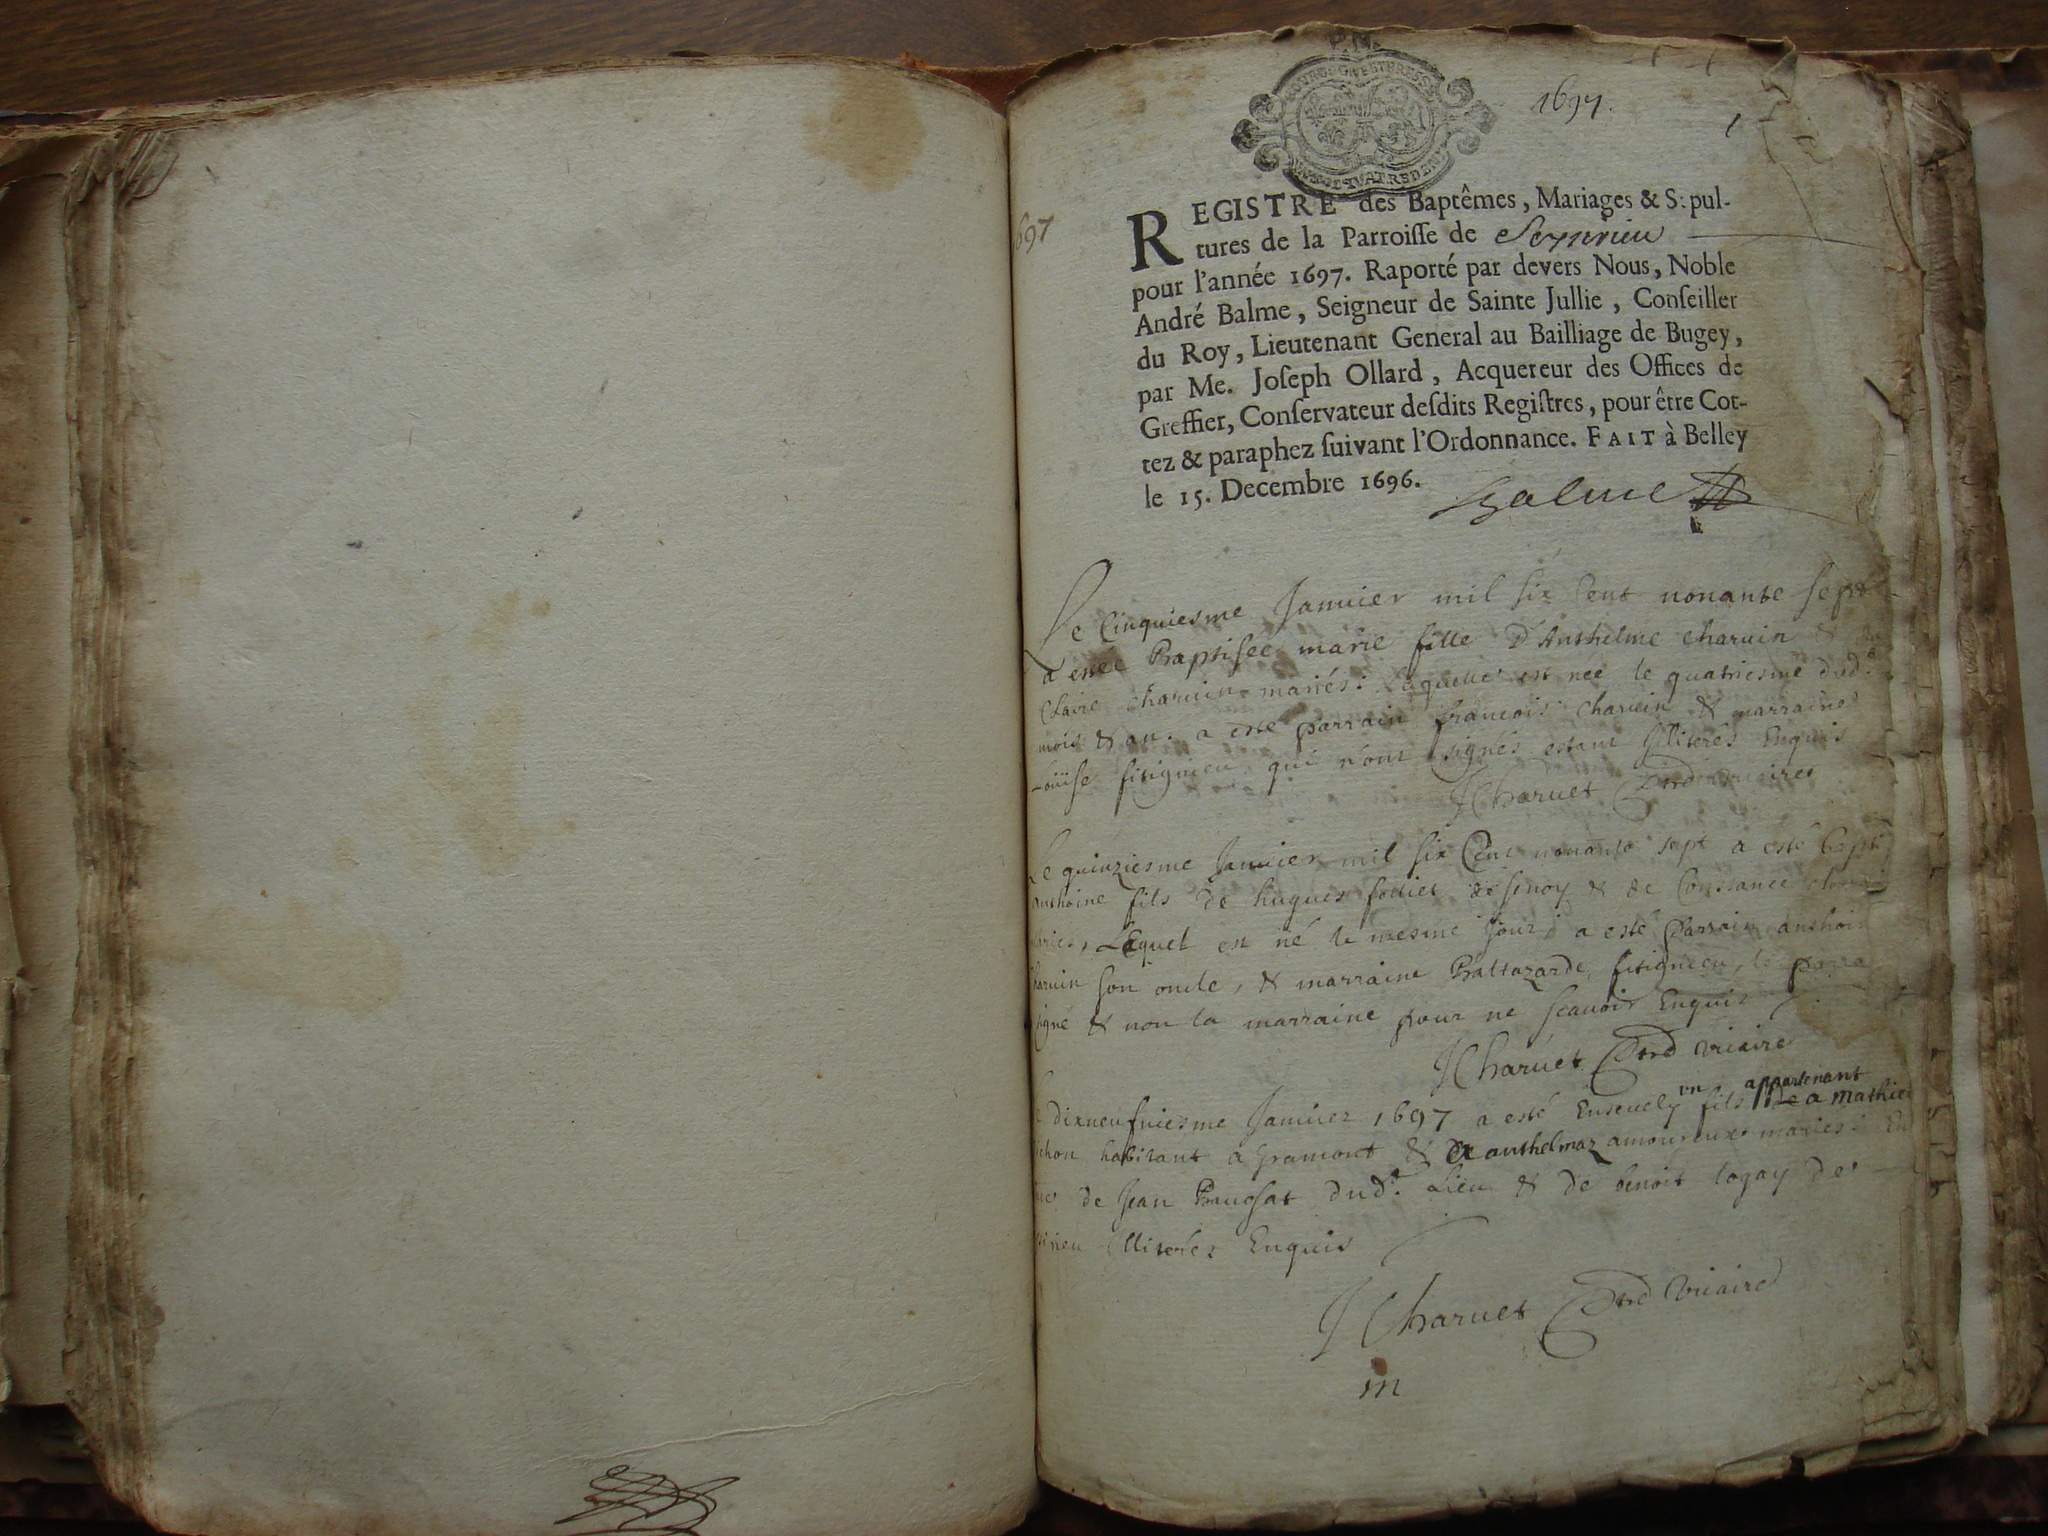 1697.
1
1697
REGISTRE des Baptêmes, Mariages & Sepul-
tures de la Parroisse de Seyrrieu
pour l'année 1697. Raporté par devers Nous, Noble
André Balme, Seigneur de Sainte Jullie, Conseiller
du Roy, Lieutenant General au Bailliage de Bugey,
par Me. Joseph Ollard, Acquereur des Offices de
Greffier, Conservateur desdits Registres, pour être Cot-
tez & paraphez suivant l'Ordonnance. FAIT à Belley
le 15. Decembre 1696.
Balme
Le Cinquiesme Januier mil six Cent nonante sept
a esté Baptisée marie fille d'Anthelme charuin &
Claire charuin mariés: Laquelle est née le quatriesme dud.
mois & an. a esté parrain francois charuin & marraine
Louïse fitignieu qui n'ont signés estant Illiterés Enquis
JCharuet vicaire
Le quinziesme Januier mil six Cent nonante sept a esté bapt
anthoine fils de hugues de & de Constance
Lequel est né le mesme jour a esté parrain anthoi
charuin son oncle, & marraine Baltazarde fitignieu, le parra
signé & non la marraine pour ne scauoir Enquis
JCharuet vicaire
dixneufuiesme Januier 1697 a esté Enseuely vn fils appartenant a Mathieu
habitant a Gramont & a anthelmaz amoureux mariés: En
de Jean dud. Lieu & de benoit logay de
Illiterés Enquis
JCharuet vicaire
m